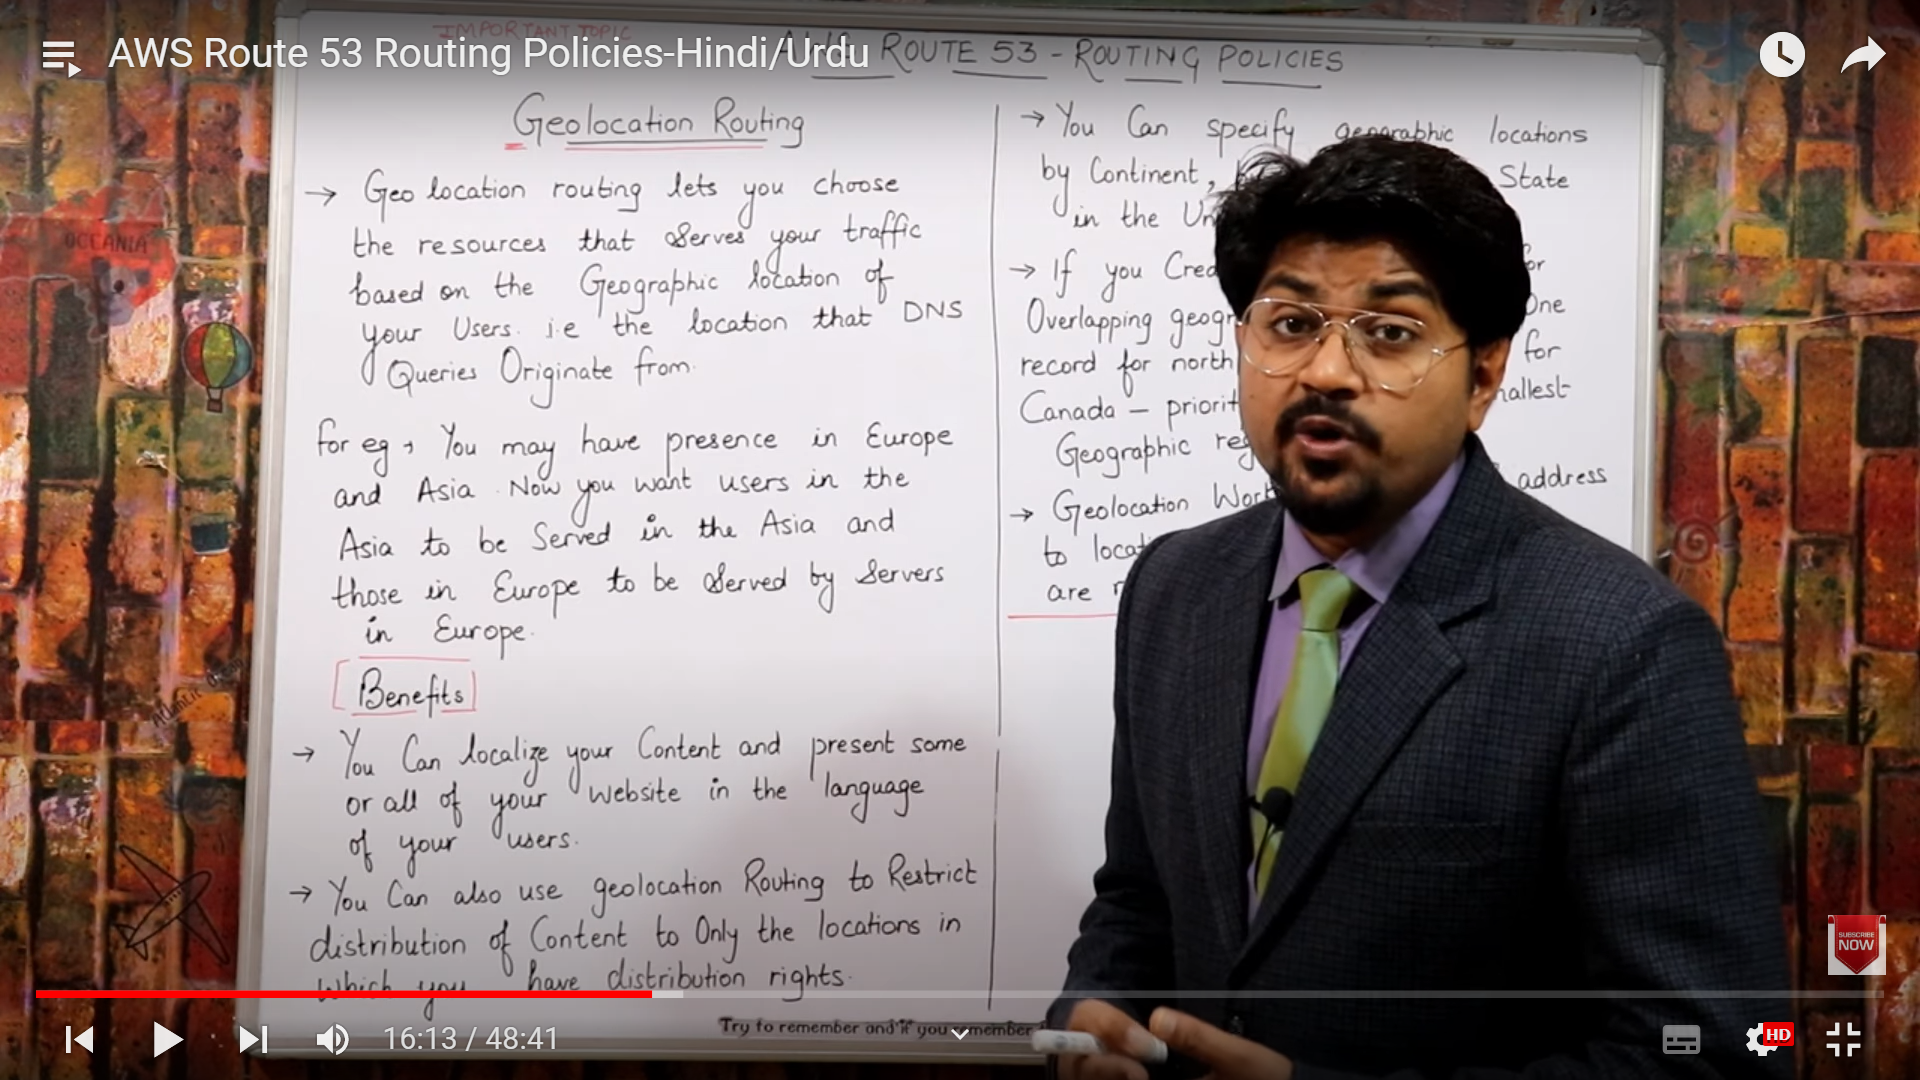 AWS Route 53 Routing Policies-Hindi/Urdu
IMPORTANT TOPIC
AWS ROUTE 53 - ROUTING POLICIES
Geolocation Routing
→ Geo location routing lets you choose
the resources that serves your traffic
based on the Geographic location of
your Users. i.e the location that DNS
Queries Originate from.
for eg, You may have presence in Europe
and Asia. Now you want users in the
Asia to be Served in the Asia and
those in Europe to be served by servers
in Europe.
Benefits
→ You Can localize your Content and present some
or all of your website in the language
of your users.
→ You Can also use geolocation Routing to Restrict
distribution of Content to Only the locations in
which you have distribution rights.
→ You Can specify geographic locations
by Continent, State
in the
→ If you
Overlapping One
record for north for
Canada –
Geographic
→ Geolocation address
to
are
OCEANIA
Try to remember and if you remember
SUBSCRIBE
NOW
16:13 / 48:41
HD